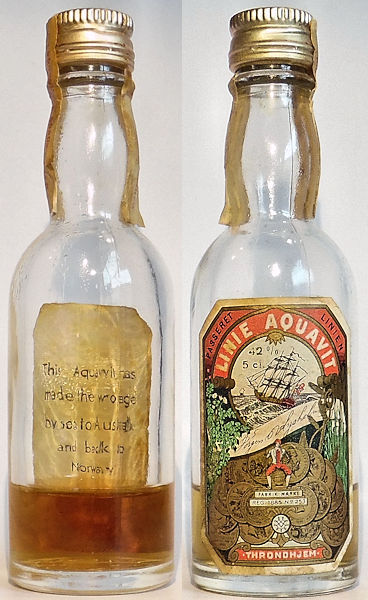 This Aquavit has
made the voyage
by boat to Australia
and back to
Norway
PASSERET LINIEN
LINIE AQUAVIT
42 %
5 cl.
FABRIK MÆRKE
THRONDHJEM